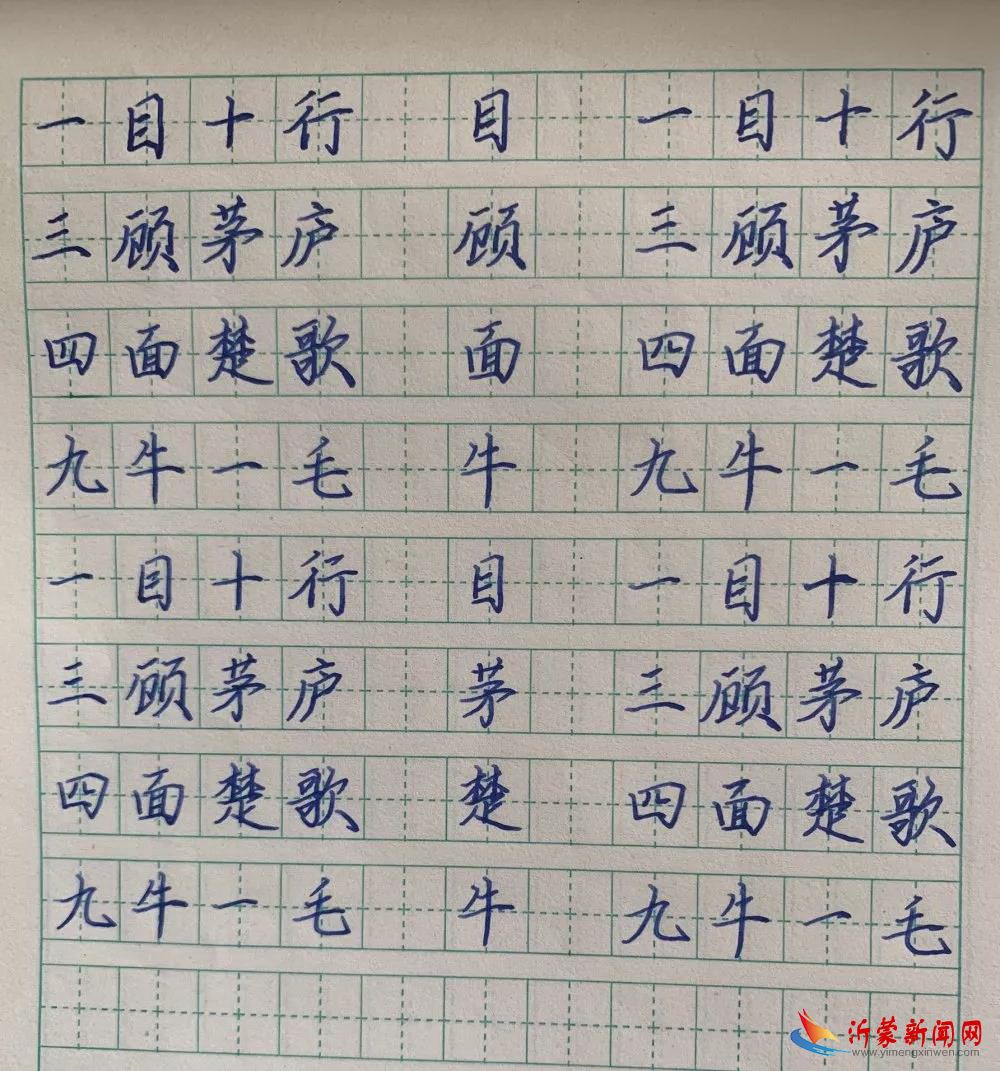 一目十行 目 一目十行
三顾茅庐 顾 三顾茅庐
四面楚歌 面 四面楚歌
九牛一毛 牛 九牛一毛
一目十行 目 一目十行
三顾茅庐 茅 三顾茅庐
四面楚歌 楚 四面楚歌
九牛一毛 牛 九牛一毛
沂蒙新闻网
www.yimengxinwen.com